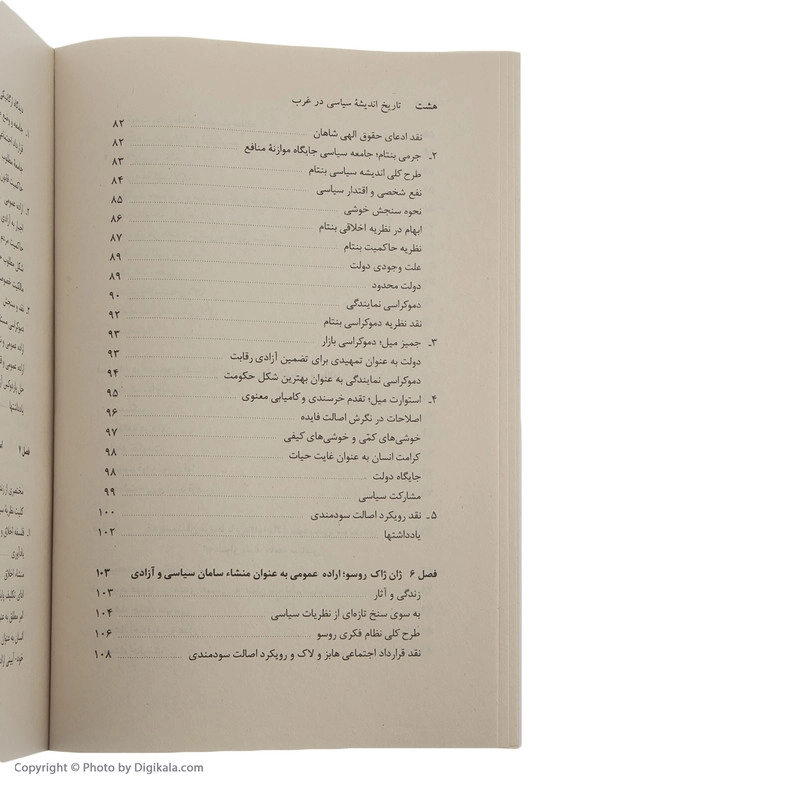 هشت تاریخ اندیشهٔ سیاسی در غرب
نقد ادعای حقوق الهی شاهان ۸۲
۲ـ جرمی بنتام؛ جامعه سیاسی جایگاه موازنهٔ منافع ۸۲
طرح کلی اندیشه سیاسی بنتام ۸۳
نفع شخصی و اقتدار سیاسی ۸۴
نحوه سنجش خوشی ۸۵
ابهام در نظریه اخلاقی بنتام ۸۶
نظریه حاکمیت بنتام ۸۷
علت وجودی دولت ۸۹
دولت محدود ۸۹
دموکراسی نمایندگی ۹۰
نقد نظریه دموکراسی بنتام ۹۲
۳ـ جمیز میل؛ دموکراسی بازار ۹۳
دولت به عنوان تمهیدی برای تضمین آزادی رقابت ۹۳
دموکراسی نمایندگی به عنوان بهترین شکل حکومت ۹۴
۴ـ استوارت میل؛ تقدم خرسندی و کامیابی معنوی ۹۵
اصلاحات در نگرش اصالت فایده ۹۶
خوشی‌های کمّی و خوشی‌های کیفی ۹۷
کرامت انسان به عنوان غایت حیات ۹۸
جایگاه دولت ۹۸
مشارکت سیاسی ۹۹
۵ـ نقد رویکرد اصالت سودمندی ۱۰۰
یادداشتها ۱۰۲
فصل ۶ ژان ژاک روسو؛ اراده عمومی به عنوان منشاء سامان سیاسی و آزادی ۱۰۳
زندگی و آثار ۱۰۳
به سوی سنخ تازه‌ای از نظریات سیاسی ۱۰۴
طرح کلی نظام فکری روسو ۱۰۶
نقد قرارداد اجتماعی هابز و لاک و رویکرد اصالت سودمندی ۱۰۸
یادداشتها
فصل ۷
Copyright © Photo by Digikala.com